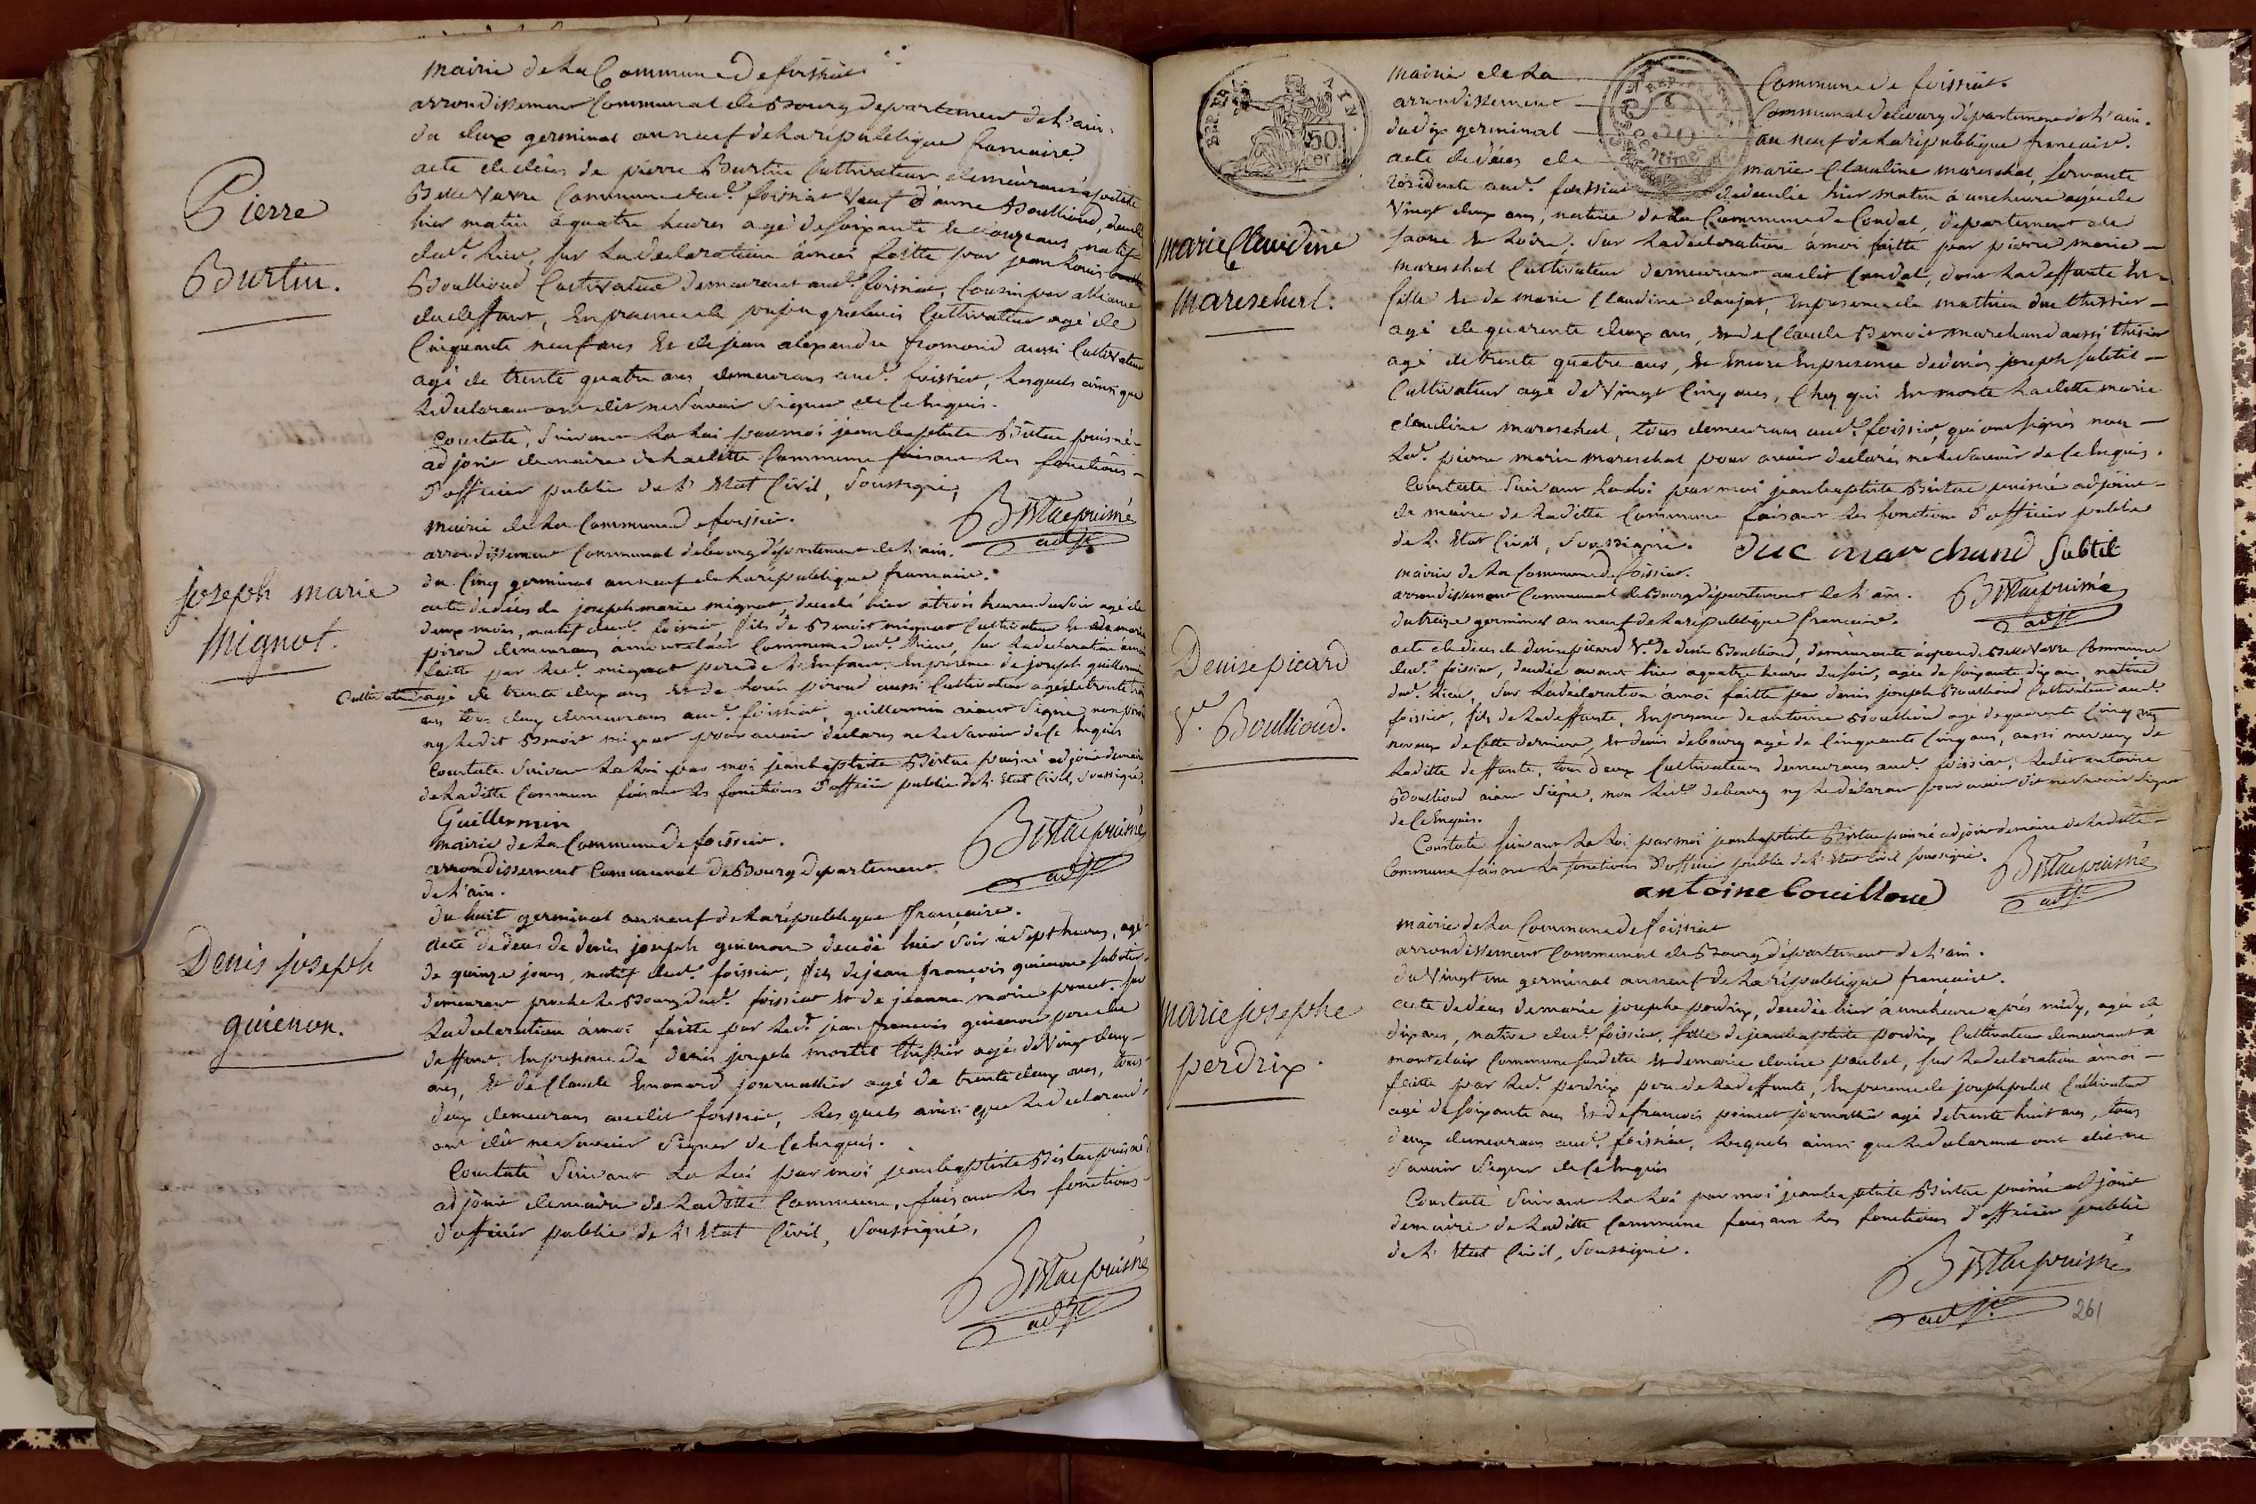 Pierre
Burtin.
mairie de la Commune de foissiat
arrondissement Communal de Bourg departement de l'ain.
du deux germinal an neuf de la republique francaise.
acte de décès de pierre Burtin Cultivateur demeurant a petite
Bellevavre Commune dud.t foissiat Veuf d'anne Boullioud, décédé
hier matin à quatre heures agé de soixante et onze ans, natif
dud.t lieu, sur la declaration à moi faitte par jean louis
Boullioud Cultivateur demeurant aud.t foissiat, Cousin par alliance
du deffunt, En presence de Cultivateur agé de
Cinquante neuf ans Et de jean alexandre fromond aussi Cultivateur
agé de trente quatre ans, demeurans aud.t foissiat, lesquels ainsi que
le declarant ont dit ne savoir signer de Ce Enquis.
Constaté, Suivant La Loi par moi jean baptiste Bistac puisné
adjoint de maire de laditte Commune faisant les fonctions
d'officier public de l'Etat Civil, Soussigné,
Bistac puisné
adjt
joseph marie
mignot.
mairie de la Commune de foissiat.
arrondissement Communal de bourg département de l'ain.
du Cinq germinal an neuf de la république francaise.
acte de décès de joseph marie mignot, décédé hier à trois heures du soir agé de
deux mois, natif dud.t foissiat, fils de Benoit mignot Cultivateur Et de marie
piroud demeurans à montclair Commune dud.t lieu, sur la declaration à moi
faitte par led.t mignot pere de l'Enfant, En presence de joseph guillermin
Cultivateur agé de trente deux ans Et de piroud aussi Cultivateur agé de trente trois
ans tous deux demeurans aud.t foissiat, guillermin aiant signé, non
ny ledit Benoit mignot pour avoir déclarés ne le savoir de Ce Enquis
Constaté Suivant La Loi par moi jean baptiste Bistac puisné adjoint de maire
de Laditte Commune faisant les fonctions d'officier public de l'Etat Civil, Soussigné.
Guillermin
Bistac puisné
adjt
Denis joseph
guienon.
mairie de la Commune de foissiat.
arrondissement Communal de Bourg departement
de l'ain.
du huit germinal an neuf de la république francaise.
acte de décès de denis joseph guienon décédé hier soir à sept heures, agé
de quinze jours, natif dud.t foissiat, fils de jean françois guienon sabotier
demeurant proche le Bourg dud.t foissiat Et de jeanne marie poncet. sur
la declaration à moi faitte par led.t jean francois guienon pere du
deffunt, En presence de denis joseph mortel thissier agé de vingt deux
ans, Et de Claude Emonard journallier agé de trente deux ans, tous
deux demeurans audit foissiat, lesquels ainsi que le declarant
ont dit ne savoir signer de Ce Enquis.
Constaté Suivant La Loi par moi jean baptiste Bistac puisné
adjoint de maire de Laditte Commune, faisant les fonctions
d'officier public de l'Etat Civil, Soussigné,
Bistac puisné
adjt
DEP. DE L'AIN.
50
cent
REP. FRA.
50
centimes
marie Claudine
mareschal.
mairie de la Commune de foissiat.
arrondissement Communal de bourg département de l'ain.
du dix germinal an neuf de la république francaise.
acte de décès de marie Claudine mareschal, servante
residente aud.t foissiat décédée hier matin à une heure agée de
Vingt deux ans, native de la Commune de Condal, departement de
saone Et Loire. sur la declaration à moi faitte par pierre marie
mareschal Cultivateur demeurant audit Condal, dont la deffunte Est
fille Et de marie Claudine daujat, En presence de mathieu duc thissier
agé de quarente deux ans, Et de Claude Benoit marchand aussi thissier
agé de trente quatre ans, Et Encore En presence de denis joseph subtil
Cultivateur agé de Vingt Cinq ans, Chez qui Est morte ladite marie
claudine mareschal, tous demeurans aud.t foissiat, qui ont signés non
led.t pierre marie mareschal pour avoir declarés ne le savoir de Ce Enquis.
Constaté Suivant La Loi par moi jean baptiste Bistac puisné adjoint
de maire de laditte Commune faisant les fonctions d'officier public
de l'Etat Civil, Soussigné.
duc marchand Subtil
Bistac puisné
adjt
Denise picard
V.e Boullioud.
mairie de la Commune de foissiat.
arrondissement Communal de Bourg département de l'ain.
du treize germinal an neuf de la république francaise.
acte de décès de denise picard V.e de denis Boullioud, demeurante à grande Bellevavre Commune
dud.t foissiat, décédée avant hier à quatre heures du soir, agée de soixante dix ans, native
dud.t lieu, sur la declaration à moi faitte par denis joseph Boullioud Cultivateur aud.t
foissiat, fils de la deffunte, En presence de antoine Boullioud agé de quarente Cinq ans
neveux de Cette derniere, Et denis debourg agé de Cinquante Cinq ans, aussi neveux de
laditte deffunte, tous deux Cultivateurs demeurans aud.t foissiat, ledit antoine
Boullioud aiant signé, non led.t debourg ny le déclarant pour avoir dit ne savoir signer
de Ce Enquis.
Constaté Suivant La Loi par moi jean baptiste Bistac puisné adjoint de maire de laditte
Commune faisant les fonctions d'officier public de l'Etat Civil soussigné.
antoine bouilloud
Bistac puisné
adjt
marie josephe
perdrix.
mairie de la Commune de foissiat
arrondissement Communal de Bourg département de l'ain.
du Vingt un germinal an neuf de la république francaise.
acte de décès de marie josephe perdrix, décédée hier à une heure après midy, agée de
dix ans, native dud.t foissiat, fille de jean baptiste perdrix Cultivateur demeurant à
montclair Commune susditte Et de marie pautet, sur la declaration à moi
faitte par led.t perdrix pere de la deffunte, En presence de joseph Cultivateur
agé de soixante ans Et de francois journallier agé de trente huit ans, tous
deux demeurans aud.t foissiat, lesquels ainsi que le declarant ont dit ne
savoir signer de Ce Enquis
Constaté Suivant La Loi par moi jean baptiste Bistac puisné adjoint
de maire de Laditte Commune faisant les fonctions d'officier public
de l'Etat Civil, Soussigné.
Bistac puisné
adjt
261